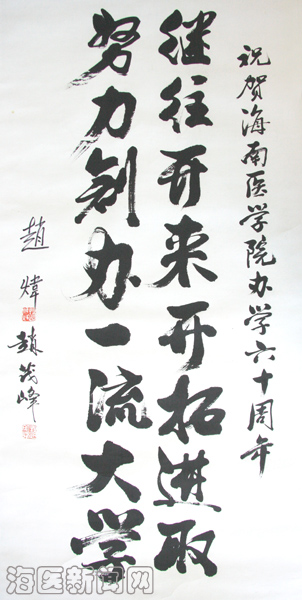 祝贺海南医学院办学六十周年
继往开来开拓进取
努力创办一流大学
赵炜
赵茂峰
海医新闻网